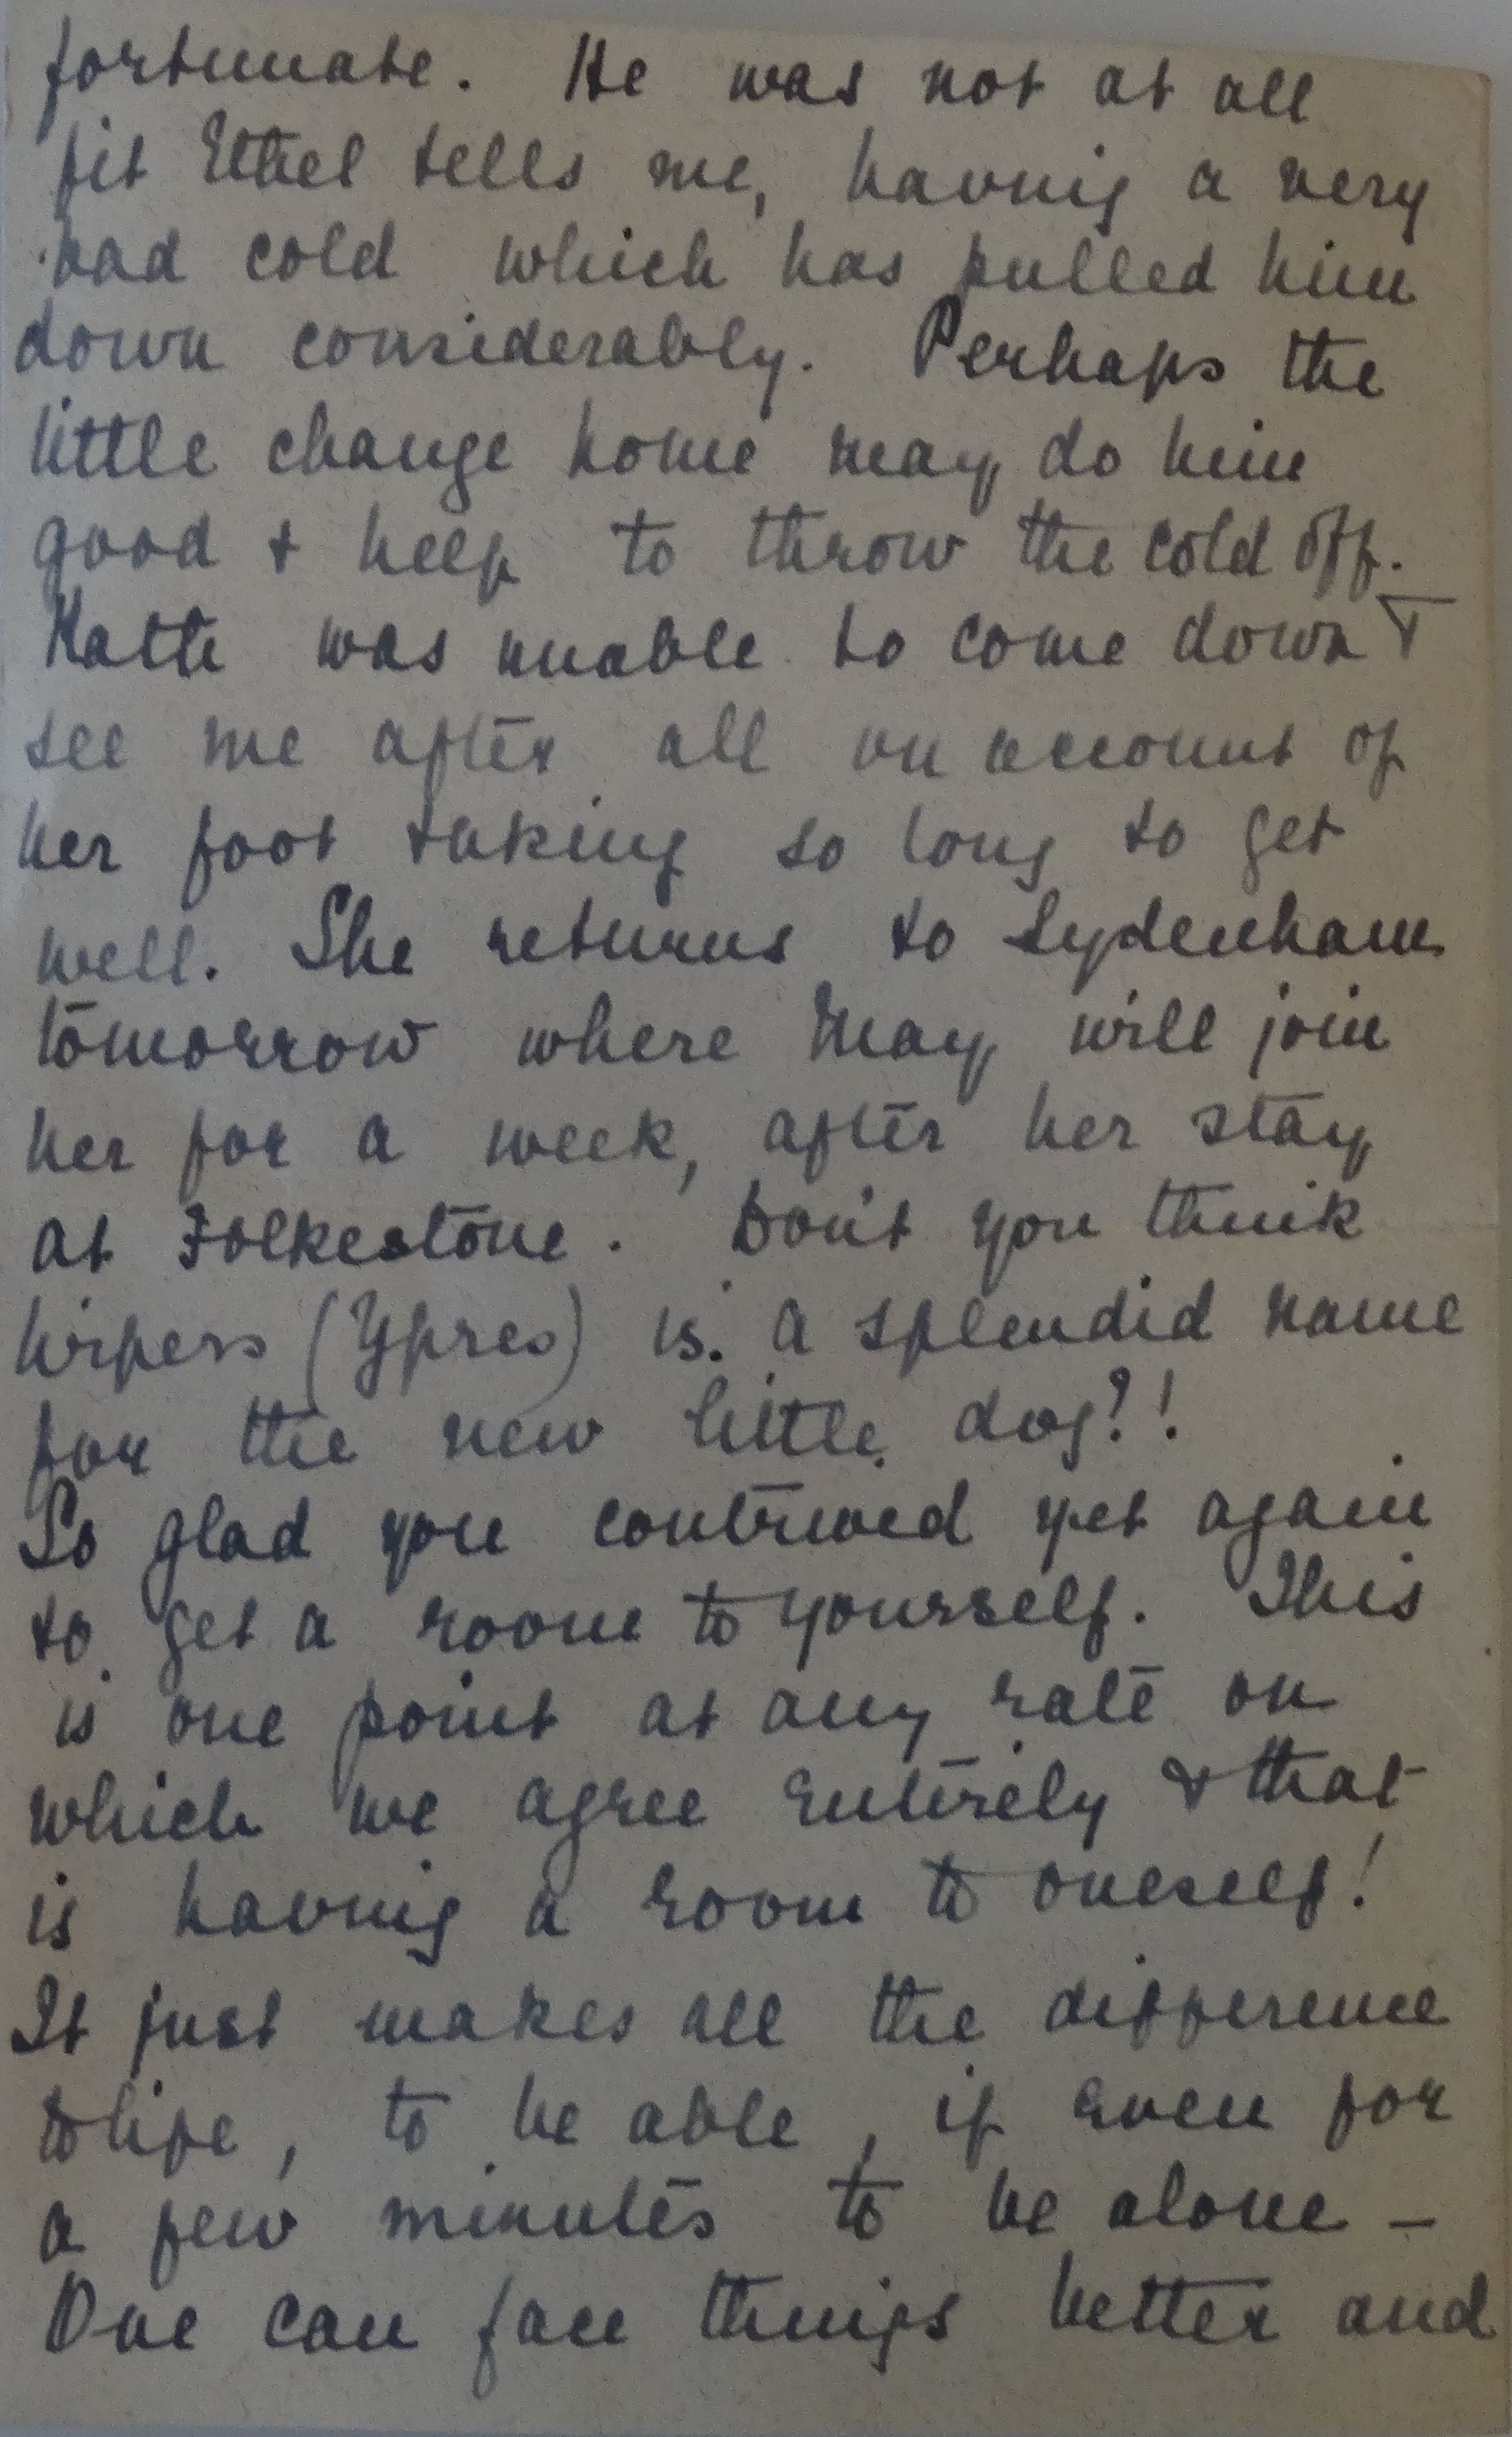 fortunate. He was not at all
fit Ethel tells me, having a very
bad cold which has pulled him
down considerably. Perhaps the
little change home may do him
good & help to throw the cold off.
was unable to come down
see me after all on account of
her foot taking so long to get
well. She returns to Sydenham
tomorrow where May will join
her for a week, after her stay
at Folkestone. Don't you think
(Ypres) is a splendid name
for the new little dog?!
So glad you contrived yet again
to get a room to yourself. This
is one point at any rate on
which we agree entirely & that
is having a room to oneself!
It just makes all the difference
to life, to be able, if even for
a few minutes to be alone –
One can face things better and